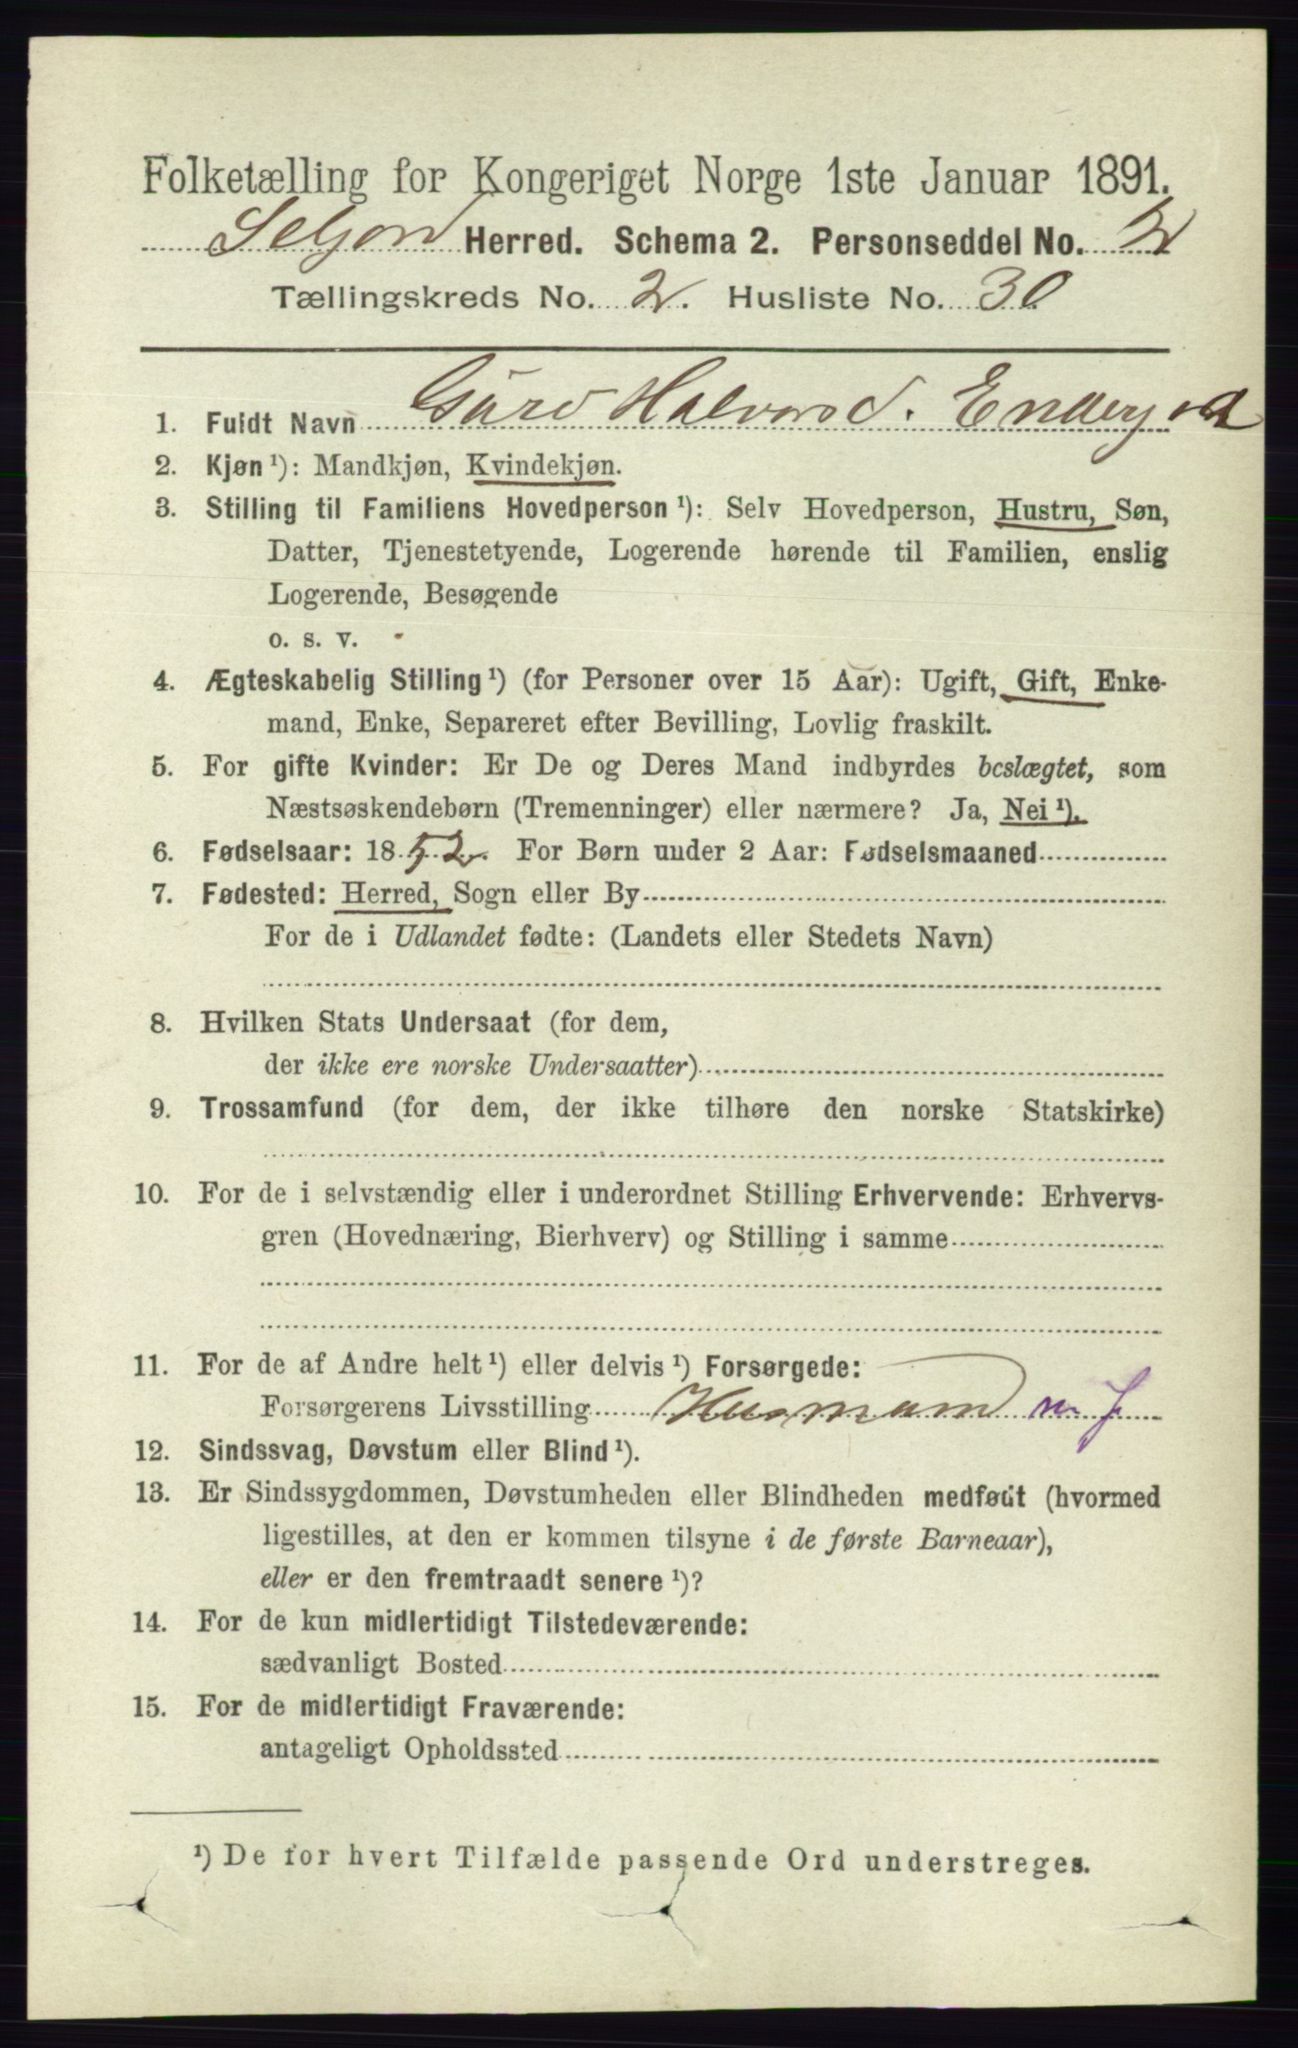 Folketælling for Kongeriget Norge 1ste Januar 1891.
Seljord Herred. Schema 2. Personseddel No. 2
Tællingskreds No. 2. Husliste No. 30
1. Fuldt Navn Gúro Halvorsd.
2. Kjøn ¹): Mandkjøn, Kvindekjøn.
3. Stilling til Familiens Hovedperson ¹): Selv Hovedperson, Hustru, Søn,
Datter, Tjenestetyende, Logerende hørende til Familien, enslig
Logerende, Besøgende
o. s. v.
4. Ægteskabelig Stilling ¹) (for Personer over 15 Aar): Ugift, Gift, Enke-
mand, Enke, Separeret efter Bevilling, Lovlig fraskilt.
5. For gifte Kvinder: Er De og Deres Mand indbyrdes beslægtet, som
Næstsøskendebørn (Tremenninger) eller nærmere? Ja, Nei ¹).
6. Fødselsaar: 1852. For Børn under 2 Aar: Fødselsmaaned
7. Fødested: Herred, Sogn eller By
For de i Udlandet fødte: (Landets eller Stedets Navn)
8. Hvilken Stats Undersaat (for dem,
der ikke ere norske Undersaatter)
9. Trossamfund (for dem, der ikke tilhøre den norske Statskirke)
10. For de i selvstændig eller i underordnet Stilling Erhvervende: Erhvervs-
gren (Hovednæring, Bierhverv) og Stilling i samme
11. For de af Andre helt ¹) eller delvis ¹) Forsørgede:
Forsørgerens Livsstilling Husmand m. J
12. Sindssvag, Døvstum eller Blind ¹).
13. Er Sindssygdommen, Døvstumheden eller Blindheden medfødt (hvormed
ligestilles, at den er kommen tilsyne i de første Barneaar),
eller er den fremtraadt senere ¹)?
14. For de kun midlertidigt Tilstedeværende:
sædvanligt Bosted
15. For de midlertidigt Fraværende:
antageligt Opholdssted
¹) De for hvert Tilfælde passende Ord understreges.